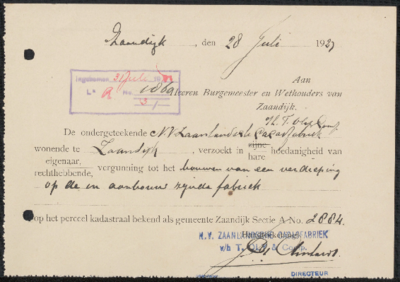 Zaandijk, den 28 Juli 1921
Aan
Ingekomen
La A No. 1860
Heeren Burgemeester en Wethouders van
Zaandijk.
De ondergeteekende N.V. Zaanlandsche Cacaofabriek
wonende te Zaandijk, verzoekt in zijne hoedanigheid van
hare
eigenaar,
rechthebbende,
vergunning tot het bouwen van een verdieping
op de in aanbouw zijnde fabriek
op het perceel kadastraal bekend als gemeente Zaandijk Sectie A No. 2884.
N.V. ZAANLANDSCHE CACAOFABRIEK
v/h T.
DIRECTEUR